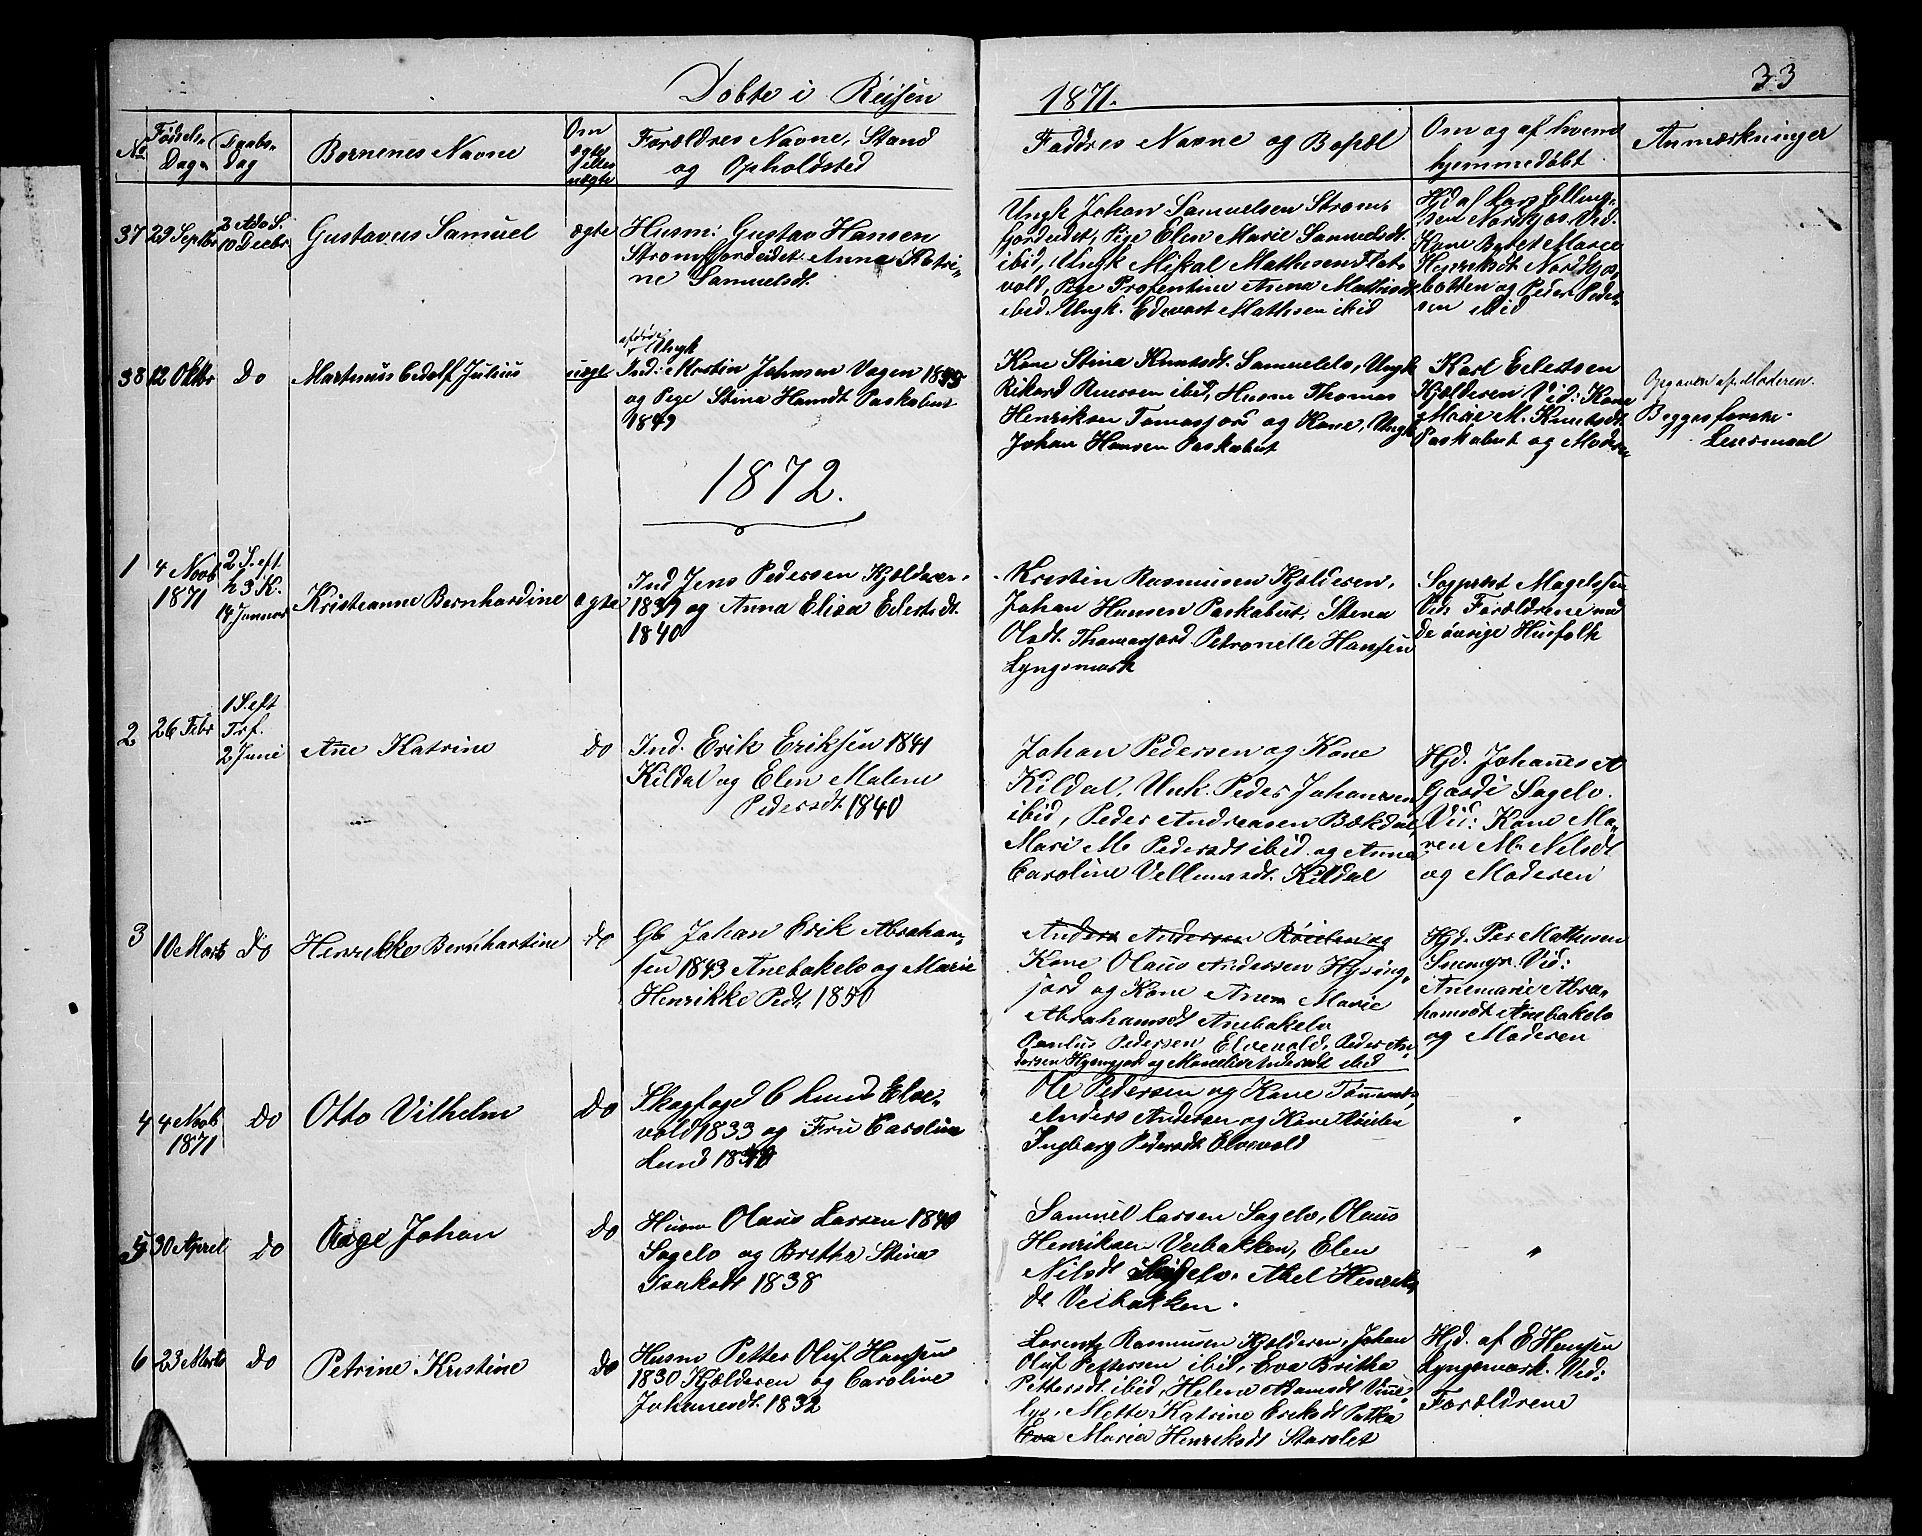 33
Døbte i Reisen
1871.
No
Fødsels-
Dag
Daabs-
dag
Børnenes Navne
Om
ægte
eller
uægte
Forældres Navne, Stand
og Opholdsted
Faddres Navne og Bopæl
Om og af hvem
hjemmedøbt
Anmærkninger
37
29 Septbr
3 Ado S.
10 Decbr
Gustavus Samuel
ægte
Husm: Gustav Hansen
Strømfjordeidet Anna Katri-
ne Samuelsdt.
Ungk Johan Samuelsen Strøm-
fjordeidet, Pige Elen Marie Samuelsdt.
ibid, Ungk Mikal Mathisen Flat-
vold, Pige Profentine Anna Mathisdt
ibid. Ungk. Edevart Mathisen ibid
Hjd af Lars Elling-
sen Nordkjos. Vid:
Kone Marie
Henriksdt Nordkjos-
botten og Peder Peder-
sen ibid
38
12 Oktbr
Do
Martinus Edolf Julius
uægt
Ungk
Ind: Mortin Johnsen Vagen 1845
og Pige Stina Hansdt Paskabut
1849
Kone Stina Knutsdt. Samuelelv, Ungk
Rikard ibid, Husm Thomas
Henriksen Tomasjord og Kone, Ungk
Johan Hansen Paskabut
Karl Eilertsen
Kjelderen Vid: Kone
Marie M. Knutsdt
Paskabut og Moderen
Opgaven af Moderen.
Begges første
Leiermaal
1872.
1
4 Novb
1871
2 S. eft.
h 3 K.
14 Januar
Kristianne Bernhardine
ægte
Ind Jens Pedersen Kjelderen
1837 og Anna Elisa Eilertsdt.
1840
Kristin Rasmusen Kjelderen,
Johan Hansen Paskabut, Stena
Olsdt. Thomasjord. Petronelle Hansen
Lyngsmark
Sogprst Magelssen
Vid: Forældrene med
de øvrige Husfolk
2
26 Febr
1 S. eft
Trf.
2 Juni
Ane Katrine
do
Ind. Erik Eriksen 1841
Kildal og Elen Malene
Pedersdt 1840
Johan Pedersen og Kone
Kildal, Unk. Peder Johannesen
ibid, Peder Andreasen Bækdal,
Mari M. Pedersdt ibid og Anna
Caroline Vellumsdt. Kildal
Hjd. Johannes A
Gaasdi Sagelv.
Vid: Kone Ma-
ren M. Nilsdt
og Moderen
3
10 Marts
do
Henrikke Bernhartine
do
Gb Johan Erik Abraham-
sen 1843 Anebakelv og Marie
Henrikke Pedt. 1850
Anders Andersen Røieelen og
Kone Olaus Andersen Hysing-
jord og Kone Ane Marie
Abrahamsdt Anebakelv
Paulus Pedersen Elvevold, Peder An-
dersen Hysingjord og Andersdt ibid
Hjd. Per Mathisen
Snemyr. Vid:
Anemarie Abra-
hamsdt Anebakelv
og Moderen
4
4 Novb
1871
do
Otto Vilhelm
do
Skogfoged C Lund Elve-
vold 1833 og Fru Caroline
Lund
Ole Pedersen og Kone
Anders Andersen og Kone Røielen
Ingborg Pedersdt Elvevold
"
5
30 April
do
Aage Johan
do
Husm Olaus Larsen 1840
Sagelv og Bretha Stina
Isaksdt 1838
Samuel Larsen Sagelv, Olaus
Henriksen Veibakken, Elen
Nilsdt Sagelv. Abel Henriks-
dt Veibakken.
"
6
23 Marts
do
Petrine Kristine
do
Husm Petter Oluf Hansen
1830 Kjelderen og Caroline
Johanesdt. 1832
Lorentz Rasmusen Kjelderen, Johan
Oluf Pettersen ibid, Eva Britha
Pettersdt. ibid, Helene Adamsdt Vinne-
lys, Mette Katrine Eriksdt Patka
Eva Maria Henriksdt Storslet
Hjd. af E Hansen
Lyngsmark. Vid:
Forældrene